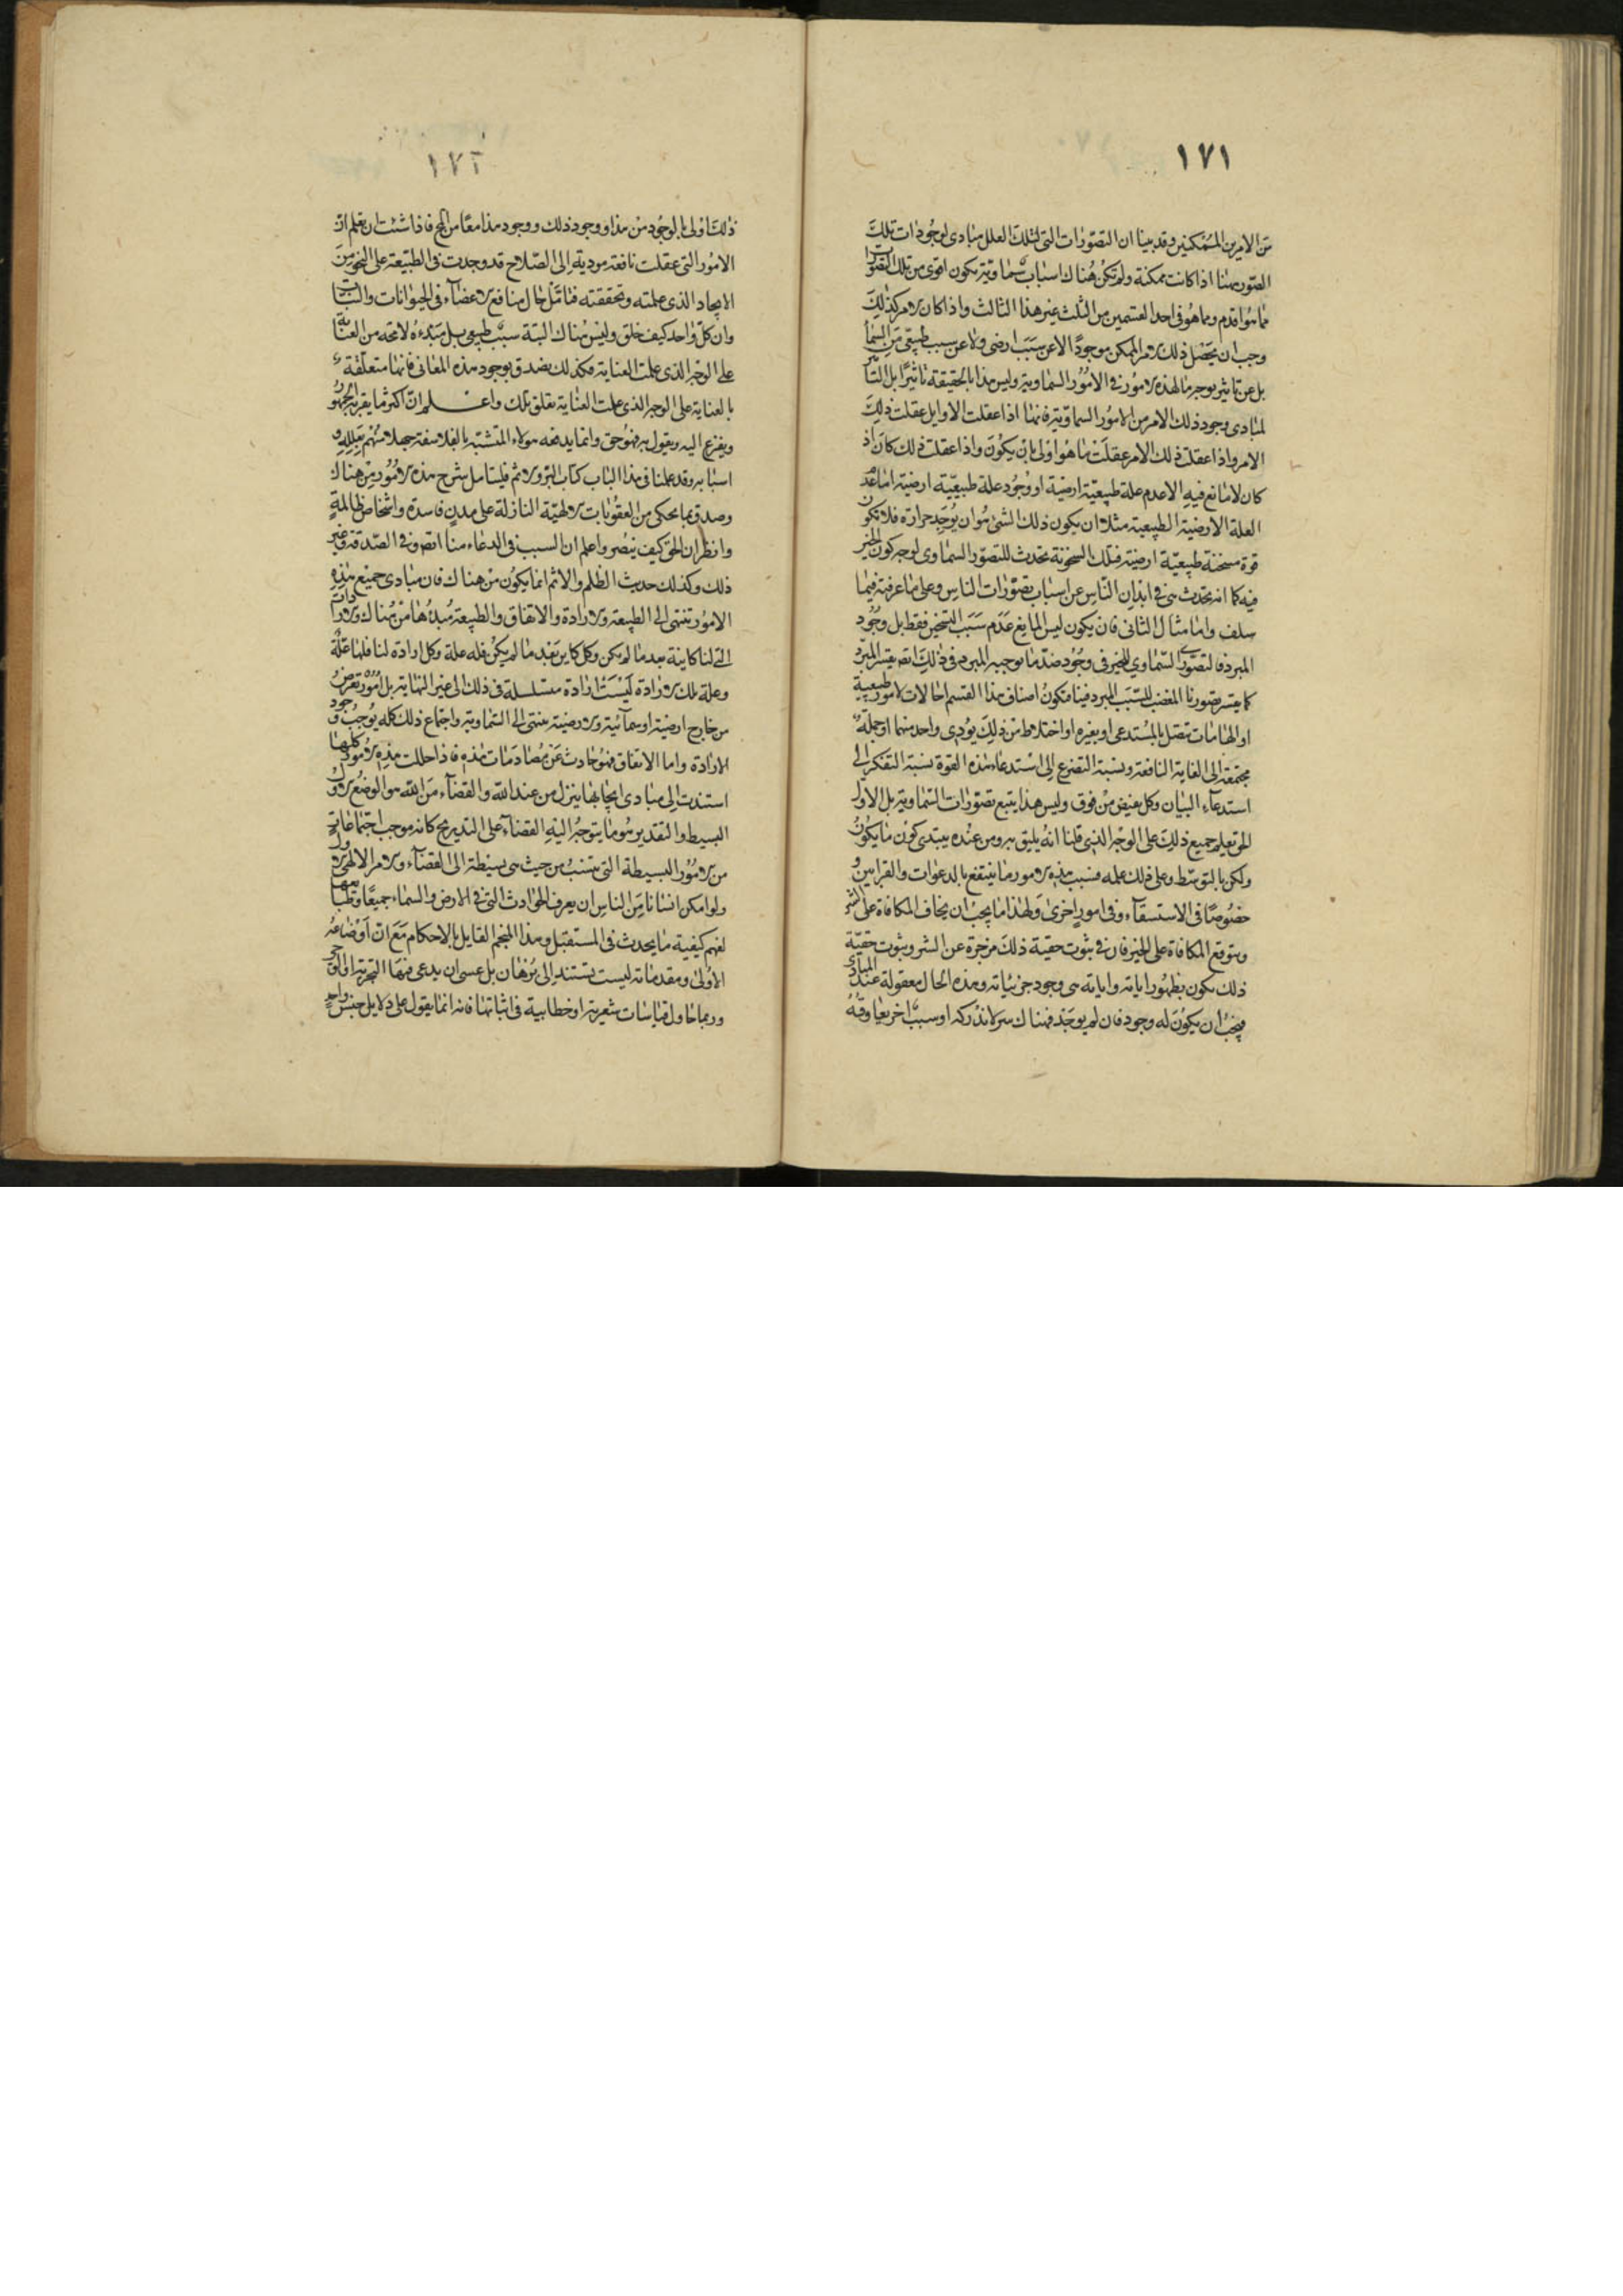 ١٧١
من الامرين الممكنين وقد بينا ان التصورات التى لتلك العلل مبادى لوجودات تلك
الصور ههنا اذا كانت ممكنة ولم تكن هناك اسباب سماوية يكون اقوى من تلك التصورات
مما هو اقدم ومما هو فى احد القسمين من الثلث غير هذا الثالث واذا كان الامر كذلك
وجب ان يحصل ذلك الامر الممكن موجودًا لا عن سبب ارضى ولا عن سبب طبيعى من السماء
بل عن تاثير بوجه ما لهذه الامور فى الامور السماوية وليس هذا بالحقيقة تاثيرًا بل التاثير
لمبادى وجود ذلك الامر من الامور السماوية فانها اذا عقلت الاوايل عقلت ذلك
الامر واذا عقلت ذلك الامر عقلت ما هو اولى بان يكون واذا عقلت ذلك كان اذ
كان لا مانع فيه الا عدم علة طبيعية ارضية او وجود علة طبيعية ارضية اما عدم
العلة الارضية الطبيعية مثلا ان يكون ذلك الشى هو ان يوجد حرارة فلا تكون
قوة مسخنة طبيعية ارضية فتلك السخونة تحدث للتصور السماوى لوجه كون الخير
فيه كما انه تحدث هى فى ابدان الناس عن اسباب تصورات الناس وعلى ما عرفته فيما
سلف واما مثال الثانى فان يكون ليس المانع عدم سبب التسخين فقط بل وجود
المبرد فالتصور السماوي للخير فى وجود ضد ما يوجبه المبرد فى ذلك ايضا يقسر المبرد
كما يقسر تصورنا المغضب للسبب المبرد فينا فتكون اصناف هذا القسم احالات لامور طبيعية
او الهامات تتصل بالمستدعى او بغيره او اختلاط من ذلك يؤدى واحد منها او جملة
مجتمعة الى الغاية النافعة ونسبة التضرع الى استدعاء هذه القوة نسبة التفكر الى
استدعاء البيان وكل يفيض من فوق وليس هذا يتبع تصورات السماوية بل الاول
الحق يعلم جميع ذلك على الوجه الذى قلنا انه يليق به ومن عنده يبتدى كون ما يكون
ولكن بالتوسط وعلى ذلك علمه فبسبب هذه الامور ما ينتفع بالدعوات والقرابين و
خصوصًا فى الاستسقاء وفى امور اخرى ولهذا ما يجب ان يخاف المكافاة على الشر
ويتوقع المكافاة على الخير فان فى ثبوت حقية ذلك مزجرة عن الشر وثبوت حقية
ذلك يكون بظهور اياته واياته هى وجود جزئياته وهذه الحال معقولة عند المبادى
فيجب ان يكون له وجود فان لم يوجد فهناك سر لا ندركه او سبب اخر يعاوقه
١٧٢
ذلك اولى بالوجود من هذا ووجود ذلك ووجود هذا معًا من المح فاذا شئت ان تعلم ان
الامور التى عقلت نافعة مودية الى الصلاح قد وجدت فى الطبيعة على النحو من
الايجاد الذى علمته وتحققته فتامل حال منافع الاعضاء فى الحيوانات والنبات
وان كل واحد كيف خلق وليس هناك البتة سبب طبيعى بل مبدءه لا محة من العناية
على الوجه الذى علمت العناية فكذلك يصدق بوجود هذه المعانى فانها متعلقة
بالعناية على الوجه الذى علمت العناية تعلق تلك واعلم ان اكثر ما يقر به الجمهور
ويفزع اليه ويقول به فهو حق وانما يدفعه هولاء المتشبه بالفلاسفة جهلا منهم بعلله و
اسبابه وقد عملنا فى هذا الباب كتاب البر والاثم فليتامل شرح هذه الامور من هناك
وصدق بما يحكى من العقوبات الالهية النازلة على مدن فاسدة واشخاص ظالمة
وانظر ان الحق كيف ينصر واعلم ان السبب فى الدعاء منا ايضا وفى الصدقة وغير
ذلك وكذلك حدث الظلم والاثم انما يكون من هناك فان مبادى جميع هذه
الامور تنتهى الى الطبيعة والارادة والاتفاق والطبيعة مبدءها من هناك والارادات
التى لنا كاينة بعد ما لم يكن وكل كاين بعد ما لم يكن فله علة وكل ارادة لنا فلها علة
وعلة تلك الارادة ليست ارادة متسلسلة فى ذلك الى غير النهاية بل امور تعرض
من خارج ارضية او سمائية والارضية تنتهى الى السماوية واجتماع ذلك كله يوجب وجود
الارادة واما الاتفاق فهو حادث عن مصادمات هذه فاذا حللت هذه الامور كلها
استندت الى مبادى ايجابها ينزل من عند الله والقضاء من الله هو الوضع الاول
البسيط والتقدير هو ما يتوجه اليه القضاء على التدريج كانه موجب اجتماعات
من الامور البسيطة التى تنسب من حيث هى بسيطة الى القضاء والامر الالهى الاول
ولو امكن انسانا من الناس ان يعرف الحوادث التى فى الارض والسماء جميعًا وطبايعها
لفهم كيفية ما يحدث فى المستقبل وهذا المنجم القايل بالاحكام مع ان اوضاعه
الاولى ومقدماته ليست تستند الى برهان بل عسى ان يدعى فيها التجربة او الوحى
وربما حاول قياسات شعرية او خطابية فى اثباتها فانه انما يقول على دلايل جنس واحد